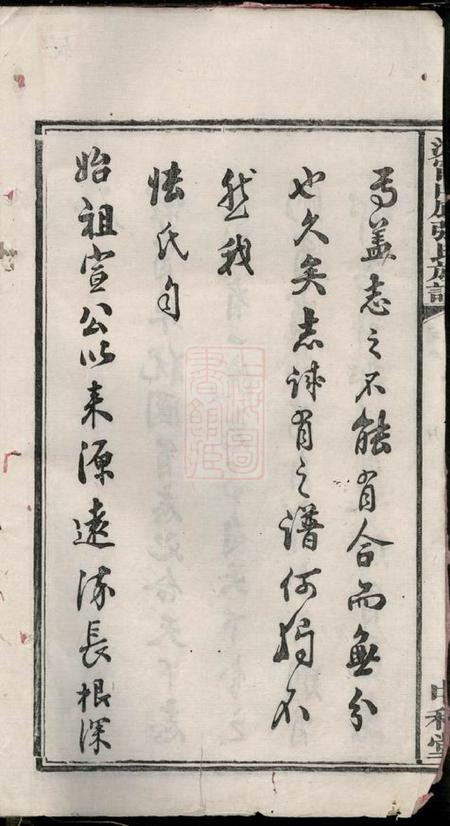 焉蓋志之不能有合而無分
也久矣志誠有之譜何獨不
然我
張氏自
始祖宣公以來源遠流長根深
上海圖
書館藏